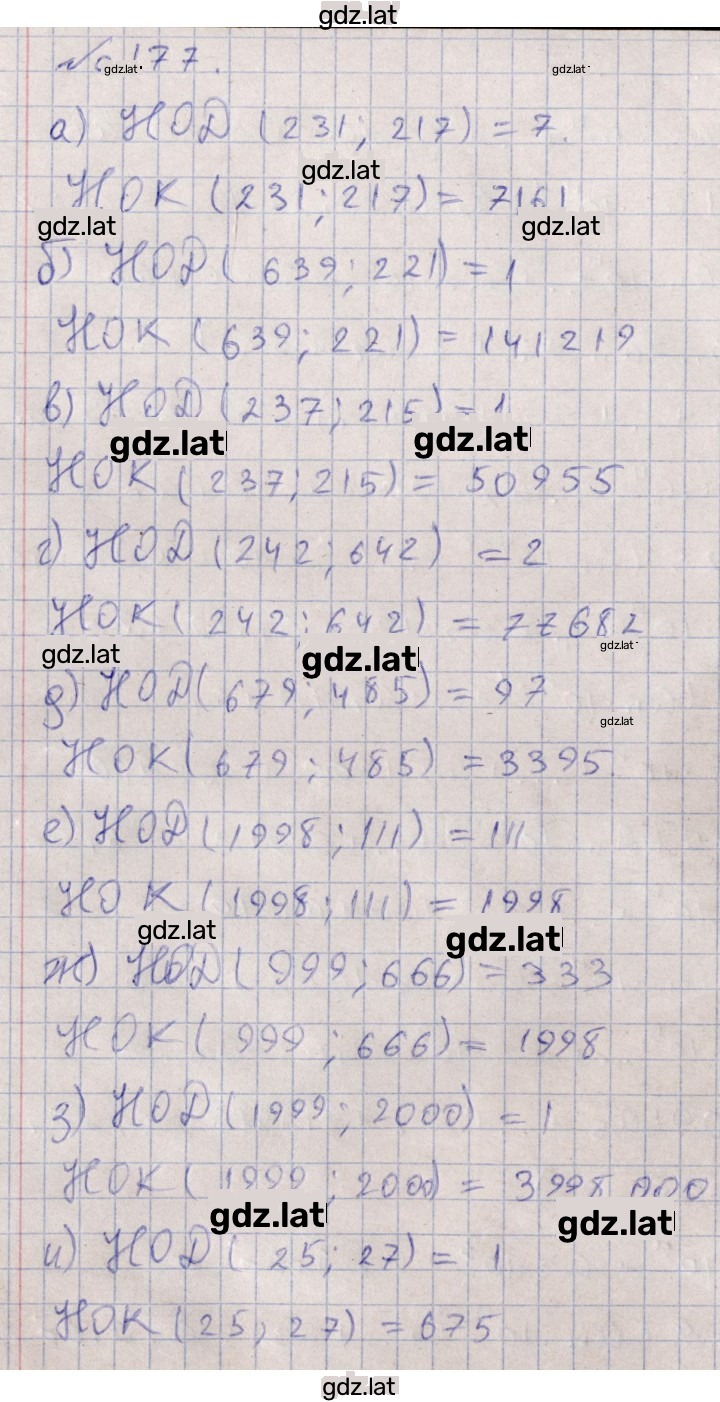 gdz.lat
№ 177.
gdz.lat gdz.lat
а) НОД (231; 217) = 7.
gdz.lat
НОК (231; 217) = 7161
gdz.lat gdz.lat
б) НОД (639; 221) = 1
НОК (639; 221) = 141219
в) НОД (237; 215) = 1
gdz.lat gdz.lat
НОК (237; 215) = 50955
г) НОД (242; 642) = 2
НОК (242; 642) = 77682
gdz.lat gdz.lat gdz.lat
д) НОД (679; 485) = 97
gdz.lat
НОК (679; 485) = 3395
е) НОД (1998; 111) = 111
НОК (1998; 111) = 1998
gdz.lat gdz.lat
ж) НОД (999; 666) = 333
НОК (999; 666) = 1998
з) НОД (1999; 2000) = 1
НОК (1999; 2000) = 3998 000
gdz.lat gdz.lat
и) НОД (25; 27) = 1
НОК (25; 27) = 675
gdz.lat